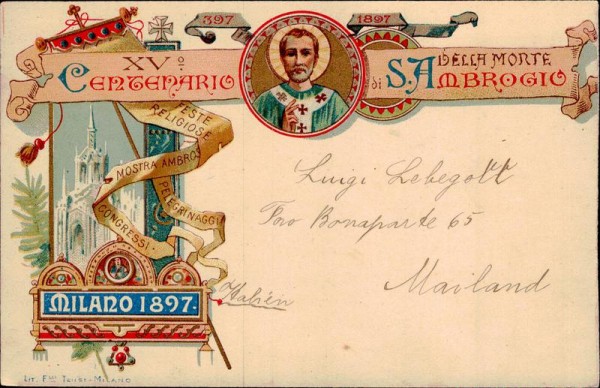 397 1897
XVº
CENTENARIO
DELLA MORTE
di S. AMBROGIO
FESTE
RELIGIOSE
MOSTRA AMBROS
PELEGRINAGGI
CONGRESSI
Luigi Lebegott
Foro Bonaparte 65
Mailand
Italien
MILANO 1897.
LIT. F.LLI TENSI-MILANO